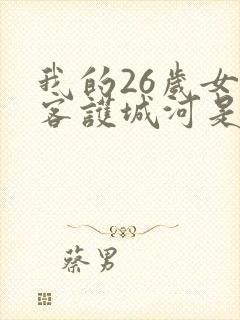 我的26歲女
客護城河是
蔡男